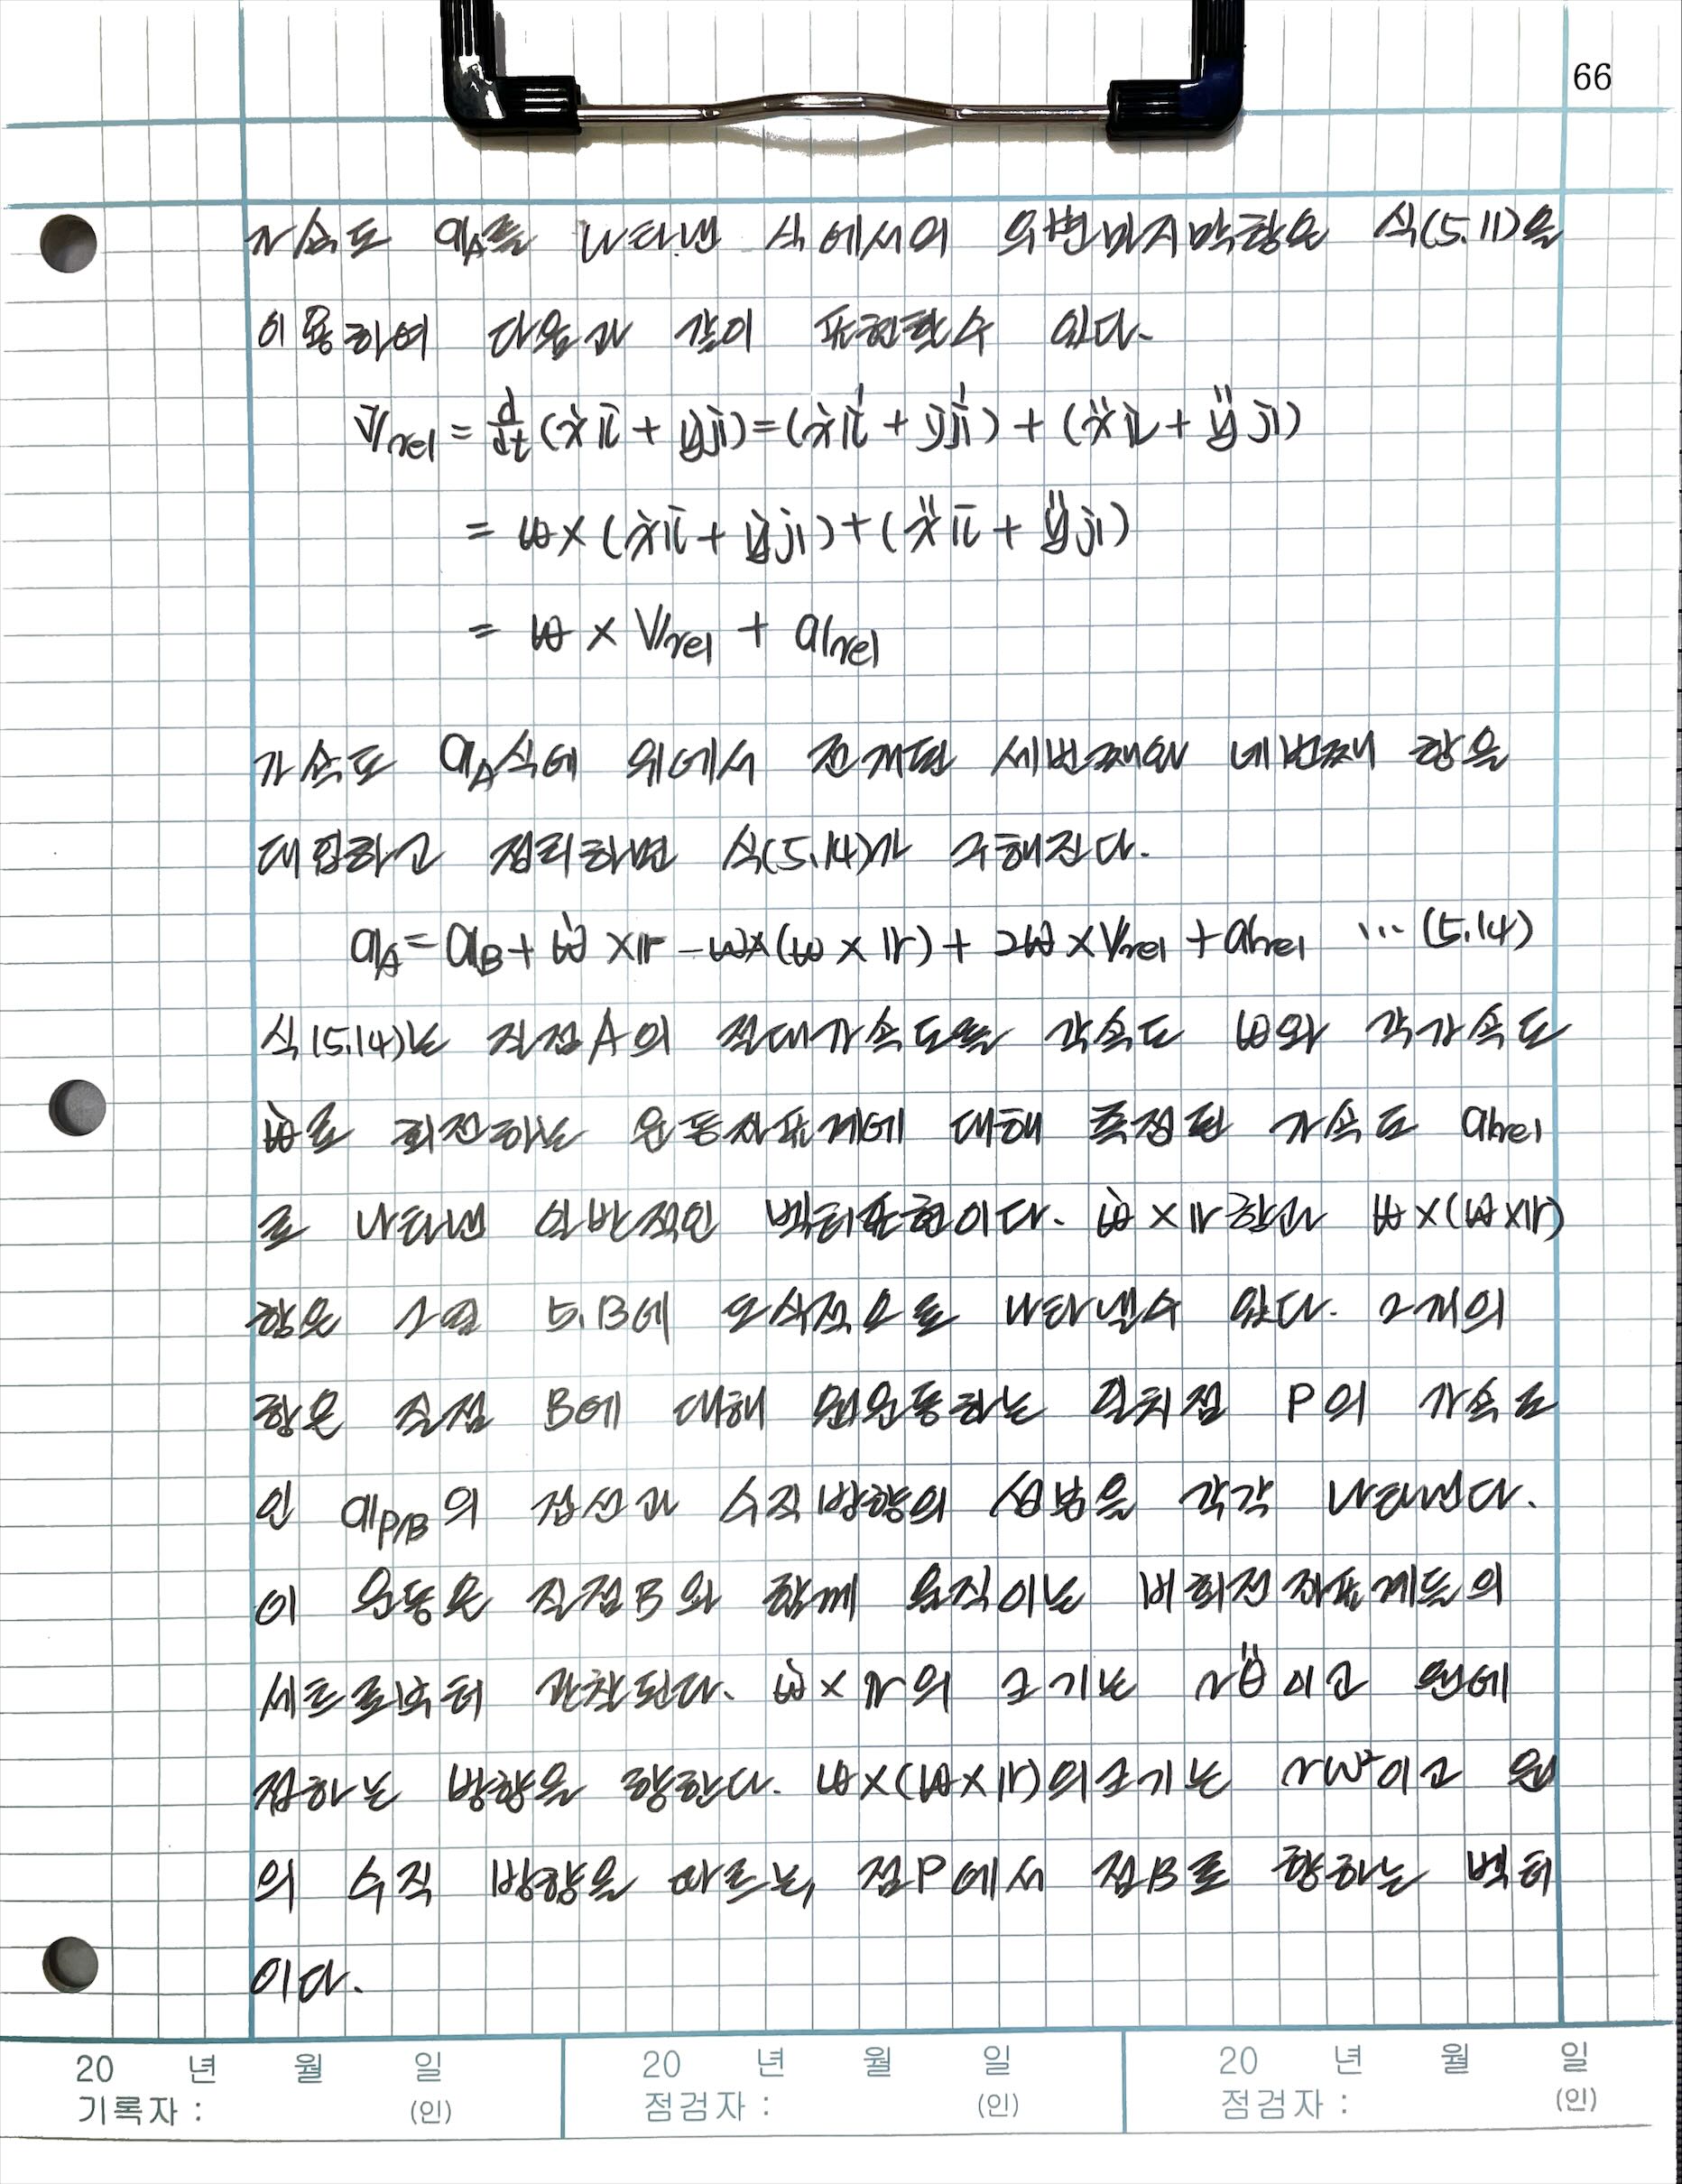 66
가속도 𝕒_A를 나타낸 식에서의 우변마지막항은 식(5.11)을
이용하여 다음과 같이 표현할수 있다.
𝕍̇_rel = d/dt (ẋ𝕚 + ẏ𝕛) = (ẋ𝕚̇ + ẏ𝕛̇) + (ẍ𝕚 + ÿ𝕛)
= 𝕨 × (ẋ𝕚 + ẏ𝕛) + (ẍ𝕚 + ÿ𝕛)
= 𝕨 × 𝕍_rel + 𝕒_rel
가속도 𝕒_A식에 위에서 전개된 세번째와 네번째 항을
대입하고 정리하면 식(5.14)가 구해진다.
𝕒_A = 𝕒_B + 𝕨̇ × 𝕣 - 𝕨 × (𝕨 × 𝕣) + 2𝕨 × 𝕍_rel + 𝕒_rel ··· (5.14)
식(5.14)는 질점A의 절대가속도를 각속도 𝕨와 각가속도
𝕨̇로 회전하는 운동좌표계에 대해 측정된 가속도 𝕒_rel
로 나타낸 일반적인 벡터표현이다. 𝕨̇ × 𝕣항과 𝕨 × (𝕨 × 𝕣)
항은 그림 5.13에 도식적으로 나타낼수 있다. 2개의
항은 질점 B에 대해 원운동하는 일치점 P의 가속도
인 𝕒_P/B의 접선과 수직방향의 성분을 각각 나타낸다.
이 운동은 질점B와 함께 움직이는 비회전좌표계들의
세트로부터 관찰된다. 𝕨̇ × 𝕣의 크기는 rθ̈이고 원에
접하는 방향을 향한다. 𝕨 × (𝕨 × 𝕣)의크기는 rw²이고 원
의 수직 방향을 따르는, 점P에서 점B로 향하는 벡터
이다.
20 년 월 일 20 년 월 일 20 년 월 일
기록자 : (인) 점검자 : (인) 점검자 : (인)